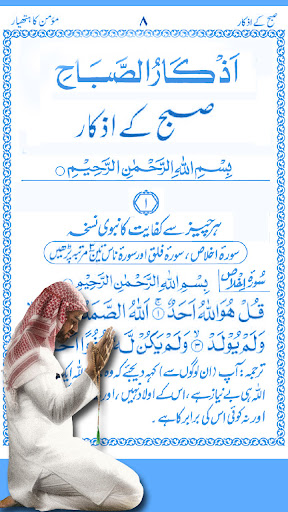 صبح کے اذکار ۸ مؤمن کا ہتھیار
اَذْكَارُ الصَّبَاحِ
صبح کے اذکار
بِسْمِ اللهِ الرَّحْمٰنِ الرَّحِيْمِ ○
۱
ہر چیز سے کفایت کا نبوی نسخہ
سورۂ اخلاص، سورۂ فلق اور سورۂ ناس تین مرتبہ پڑھیں
سُوْرَةُ اِخْلَاصْ بِسْمِ اللهِ الرَّحْمٰنِ الرَّحِيْمِ ○
قُلْ هُوَ اللهُ اَحَدٌ ① اَللهُ الصَّمَدُ
وَلَمْ يُوْلَدْ ③ وَلَمْ يَكُنْ لَّهٗ
ترجمہ: آپ (ان لوگوں سے) کہہ دیجئے کہ وہ اللہ ایک
اللہ ہی بے نیاز ہے، اس کے اولاد نہیں، اور
اور نہ کوئی اس کی برابر کا ہے۔